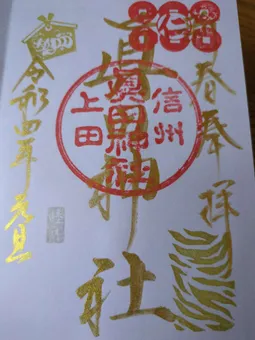 奉拝
眞田神社
信州
上田
眞田神社
令和四年元旦